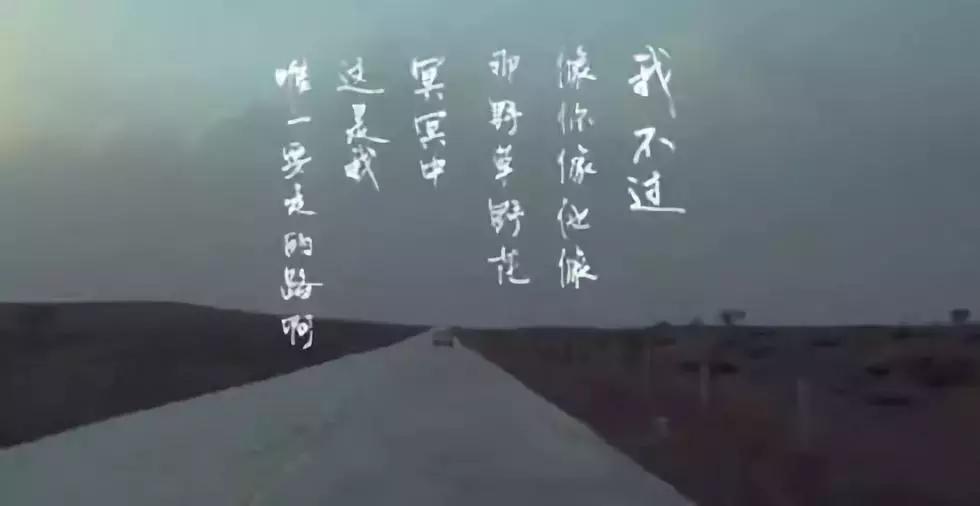 我不过
像你像他像
那野草野花
冥冥中
这是我
唯一要走的路啊